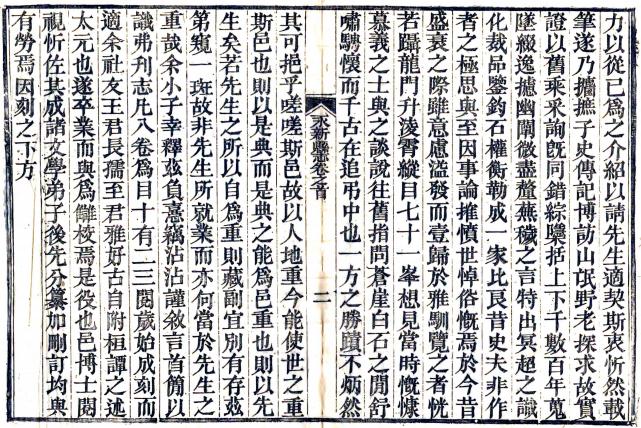 力以從已爲之介紹以請先生適契斯衷忻然載
筆遂乃攟摭子史傳記博訪山氓野老探求故實
證以舊乘釆詢旣同錯綜檃括上下千數百年蒐
墜綴逸攄幽闡微盡釐蕪穢之言特出冥超之識
化裁品鑒鈞石權衡勒成一家比良昔史夫非作
者之極思與至因事論搉憤世悼俗慨焉於今昔
盛衰之際雖意慮溢發而壹歸於雅馴覽之者恍
若躡龍門升淩霄縱目七十一峯想見當時慨慷
慕義之士與之談說往舊指問蒼崖白石之閒舒
嘯騁懷而千古在追弔中也一方之勝蹟不炳然
永新縣志卷之首
二
其可挹乎嗟嗟斯邑故以人地重今能使世之重
斯邑也則以是典而是典之能爲邑重也則以先
生矣若先生之所以自爲重則藏副宜別有存茲
第窺一斑故非先生所就業而亦何當於先生之
重哉余小子幸釋茲負憙竊沾沾謹敘言首簡以
識弗刋志凡八卷爲目十有二三閱歲始成刻而
適余社友王君長孺至君雅好古自附桓譚之述
太元也遂卒業而與爲讎校焉是役也邑博士閱
視忻佐其成諸文學弟子後先分纂加刪訂均與
有勞焉因刻之下方